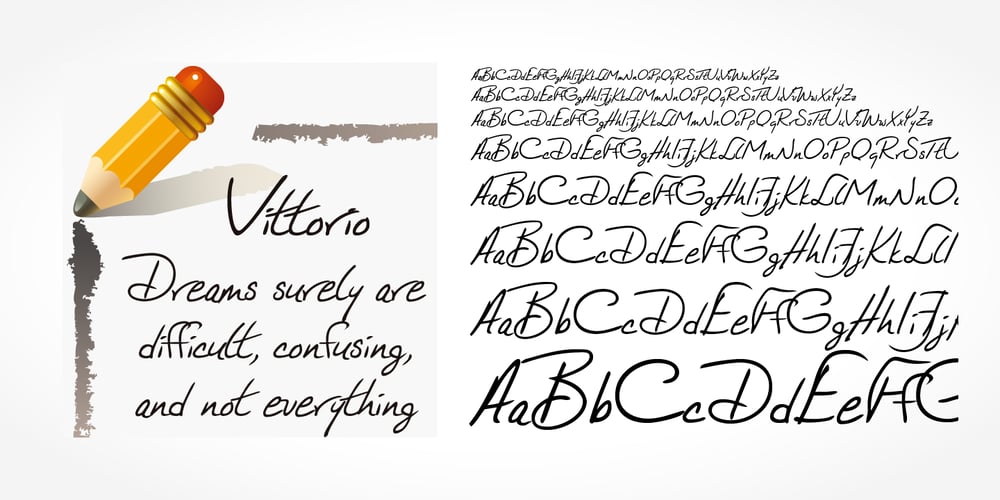 Vittorio
Dreams surely are
difficult, confusing,
and not everything
AaBbCcDdEeFfGgHhIiJjKkLlMmNnOoPpQqRrSsTtUuVvWwXxYyZz
AaBbCcDdEeFfGgHhIiJjKkLlMmNnOoPpQqRrSsTtUuVvWwXxYyZz
AaBbCcDdEeFfGgHhIiJjKkLlMmNnOoPpQqRrSsTtUuVvWwXxYyZz
AaBbCcDdEeFfGgHhIiJjKkLlMmNnOoPpQqRrSsTtU
AaBbCcDdEeFfGgHhIiJjKkLlMmNnOo
AaBbCcDdEeFfGgHhIiJjKkLl
AaBbCcDdEeFfGgHhIiJj
AaBbCcDdEeFfG